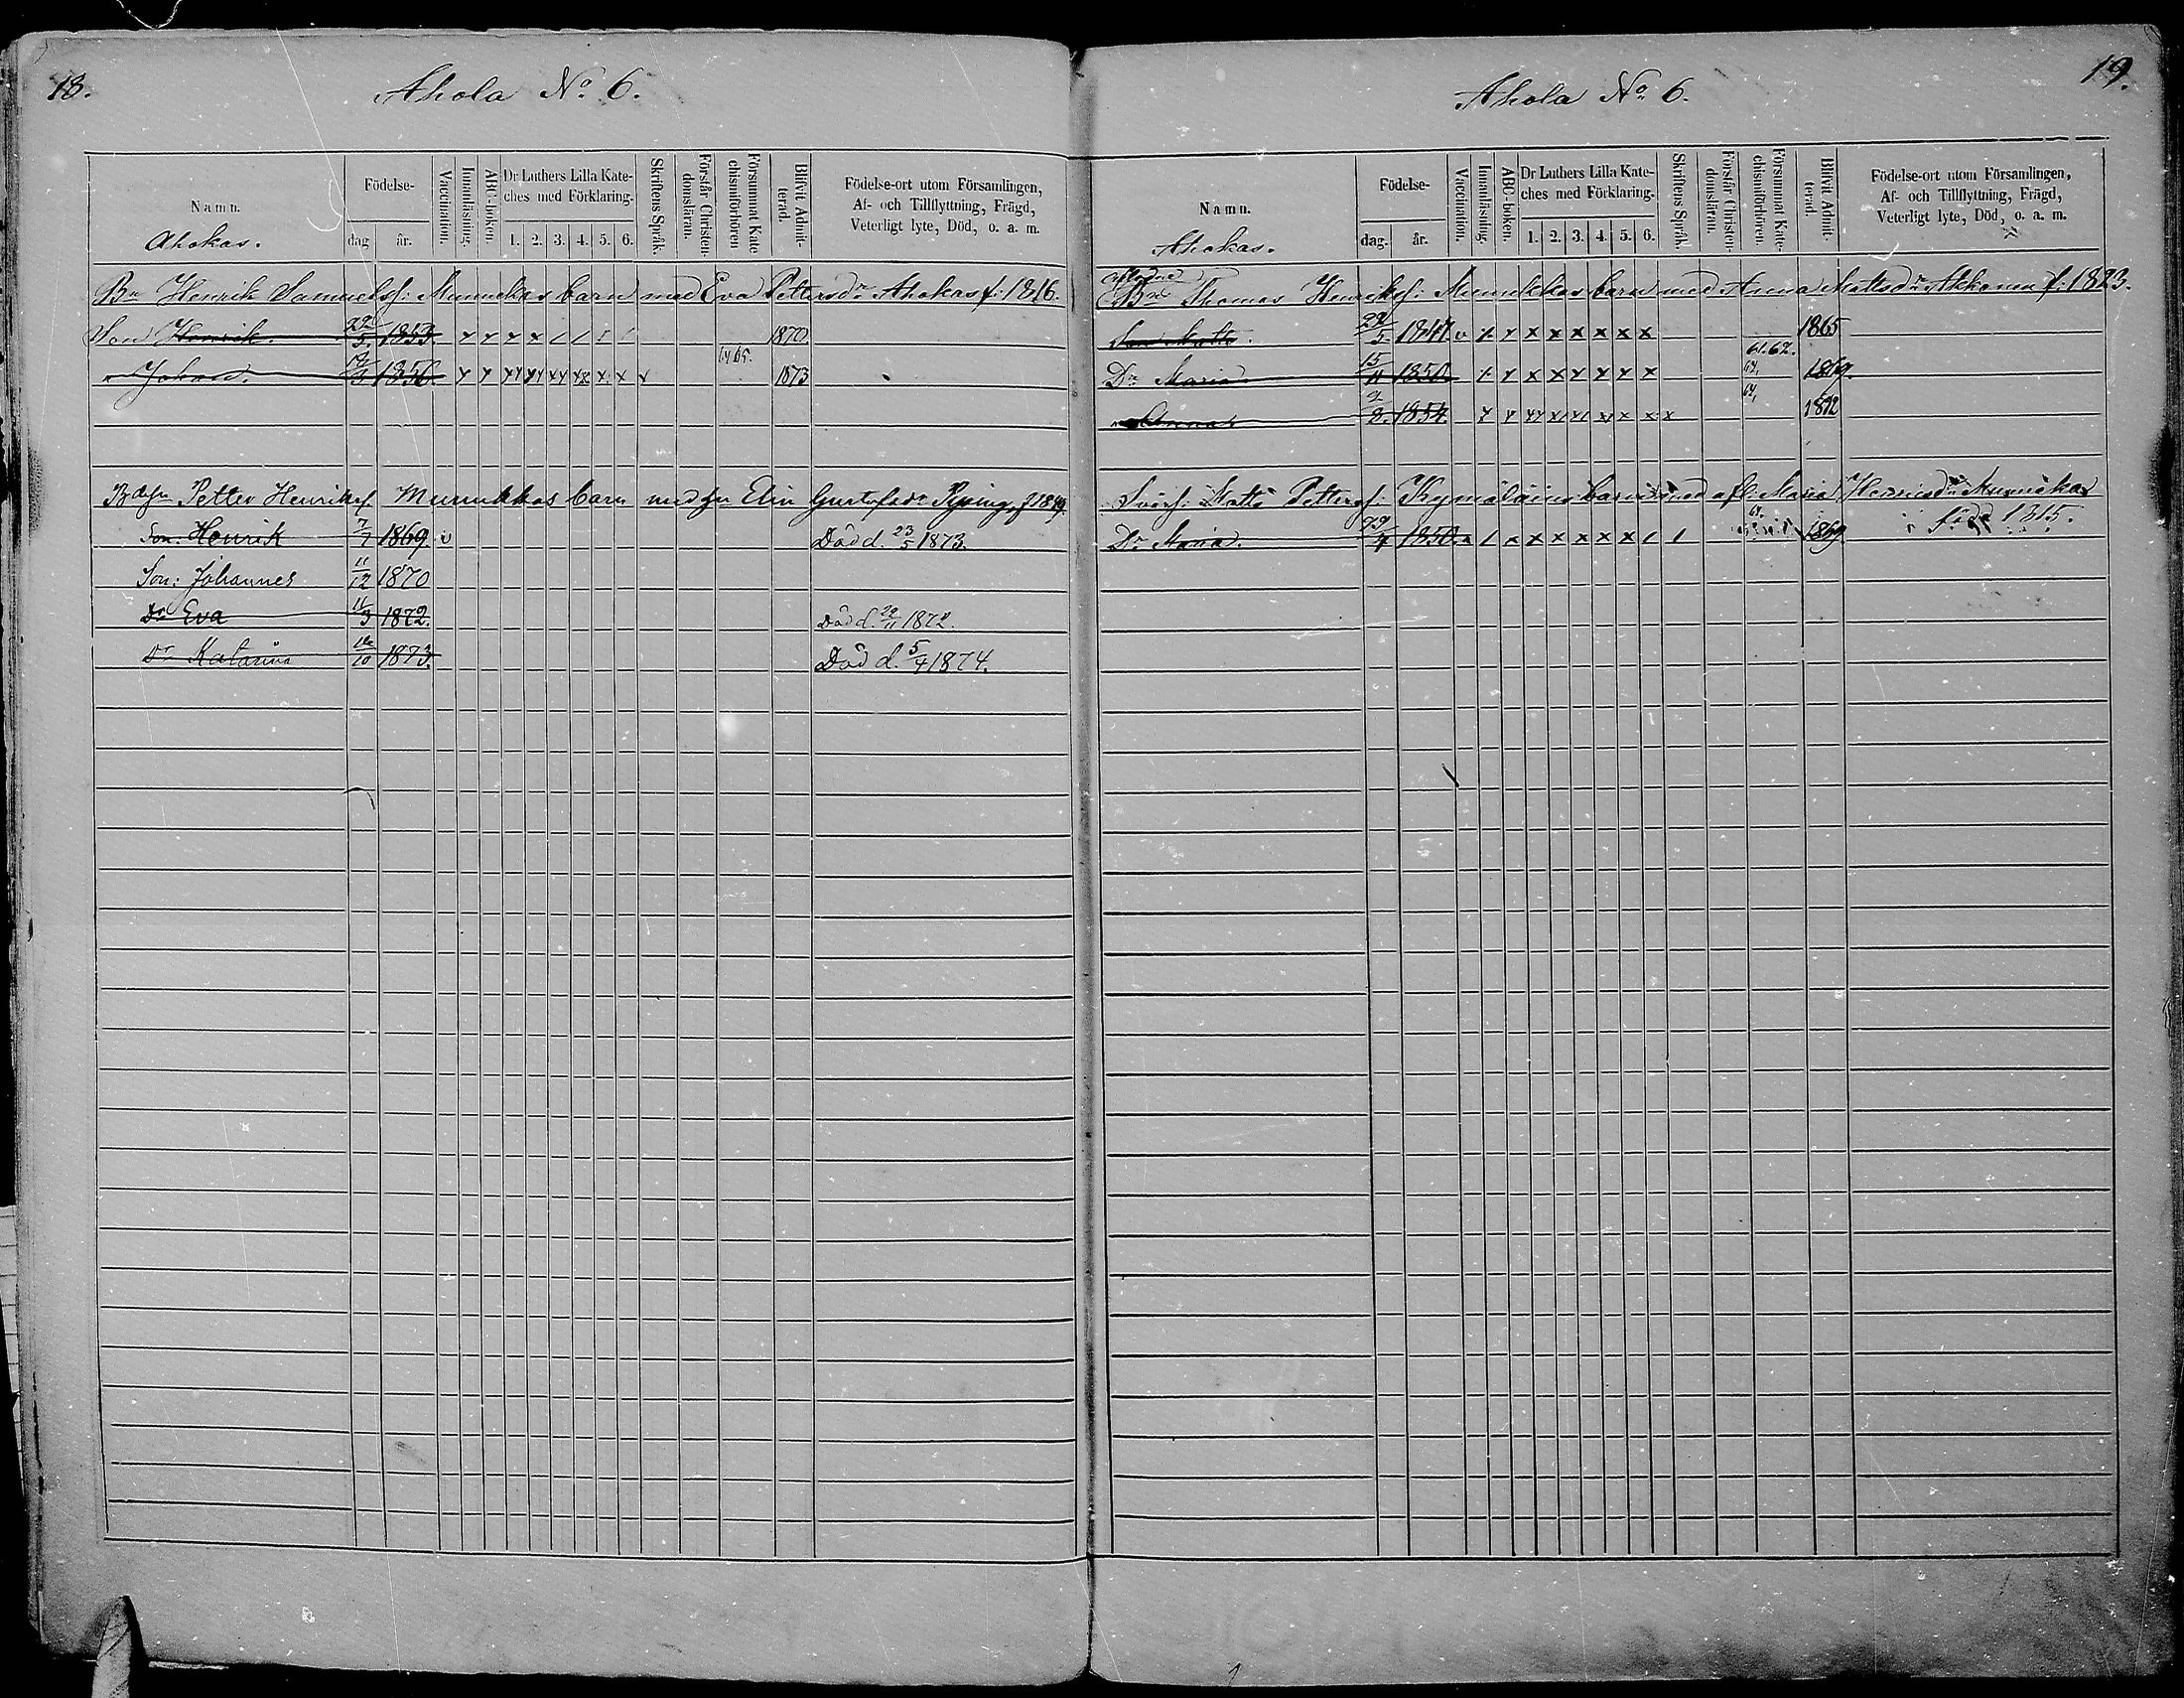 18.
Ahola No 6.
Namn.
Ahokas.
Födelse-
dag
år.
Vaccination.
Innanläsning.
ABC-boken.
Dr Luthers Lilla Kate-
ches med Förklaring.
1. 2. 3. 4. 5. 6.
Skriftens Språk.
Förstår Christen-
domsläran.
Försummat Kate
chismiförhören
Blifvit Admit-
terad.
Födelse-ort utom Församlingen,
Af- och Tillflyttning, Frägd,
Veterligt lyte, Död, o. a. m.
Bn Henrik Samuelsf: Munnukas barn med Eva Pettersdr Ahokas f: 1816.
Son Henrik. 22/5. 1853. 1870
" Johan. 1856 64 65. 1873
Petter Henriksf. Munukkas barn med hu Elin Gustafsdr f 1849.
Son: Henrik 7/7 1869. v Död d. 23/5 1873.
Son: Johannes 11/12 1870
Dr Eva 11/3 1872. Död d. 29/11 1872.
Dr Katarina /10 1873. Död d. 5/4 1874.
19.
Ahola No 6.
Namn.
Ahokas.
Födelse-
dag.
år.
Vaccination.
Innanläsning.
ABC-boken.
Dr Luthers Lilla Kate-
ches med Förklaring.
1. 2. 3. 4. 5. 6.
Skriftens Språk.
Förstår Christen-
domsläran.
Försummat Kate-
chismiförhören.
Blifvit Admit-
terad.
Födelse-ort utom Församlingen,
Af- och Tillflyttning, Frägd,
Veterligt lyte, Död, o. a. m.
Aflidne
Bn Thomas Henriksf: Munukkas barn med Anna Mattsdr Akkanen f: 1823.
Son Matts. 1847. v 1865
61. 62.
Dr Maria. 15/11 1850. 64, 1869.
" Anna 2. 1854. 64, 1872
Svärf: Matts Pettersf: Kymäläinens barn med afl. Maria Henriksdr Munnukas
född 1815.
Dr Maria. 29/4 1850. 64. 1869